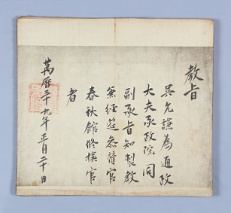 教旨
吳允謙為通政
大夫承政院同
副承旨知製教
兼經筵參贊官
春秋館修撰官
者
萬曆三十九年正月二十日